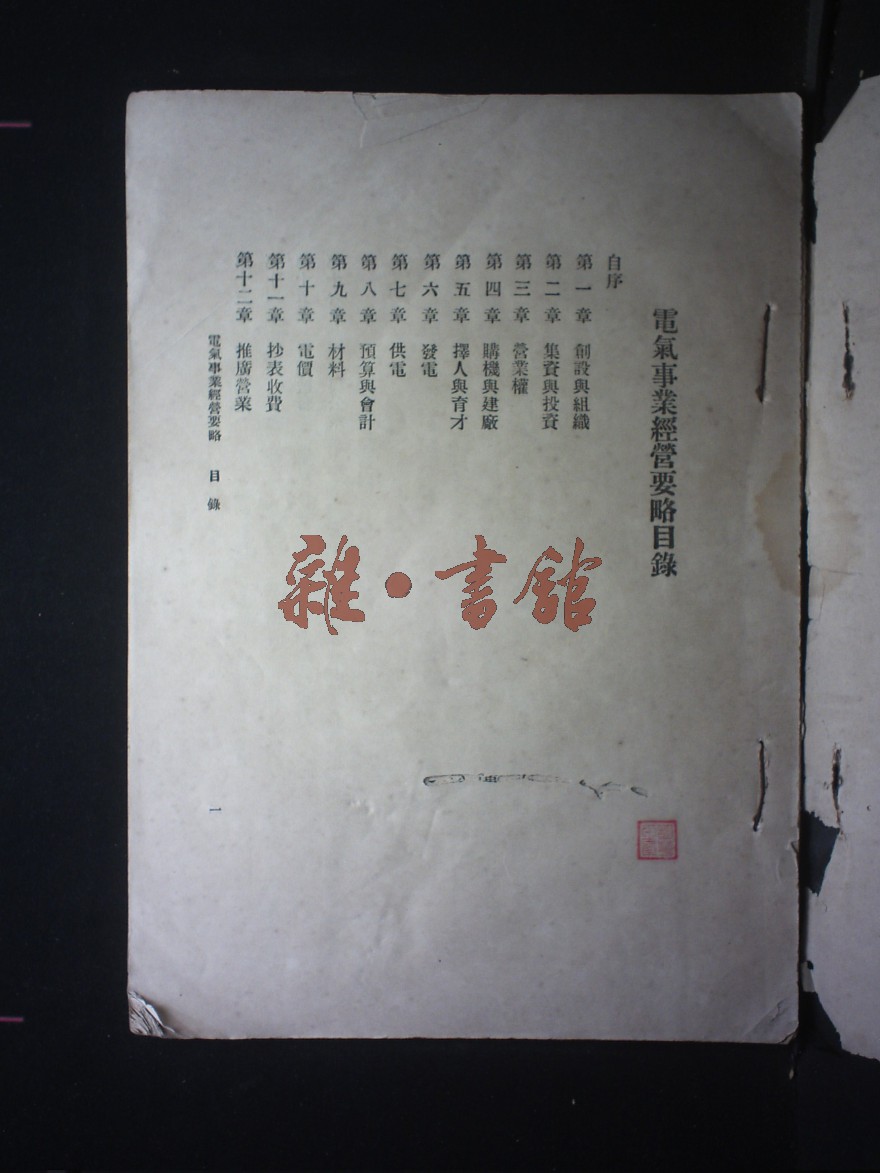 電氣事業經營要略目錄
自序
第一章 創設與組織
第二章 集資與投資
第三章 營業權
第四章 購機與建廠
第五章 擇人與育才
第六章 發電
第七章 供電
第八章 預算與會計
第九章 材料
第十章 電價
第十一章 抄表收費
第十二章 推廣營業
電氣事業經營要略 目錄
一
雜·書館